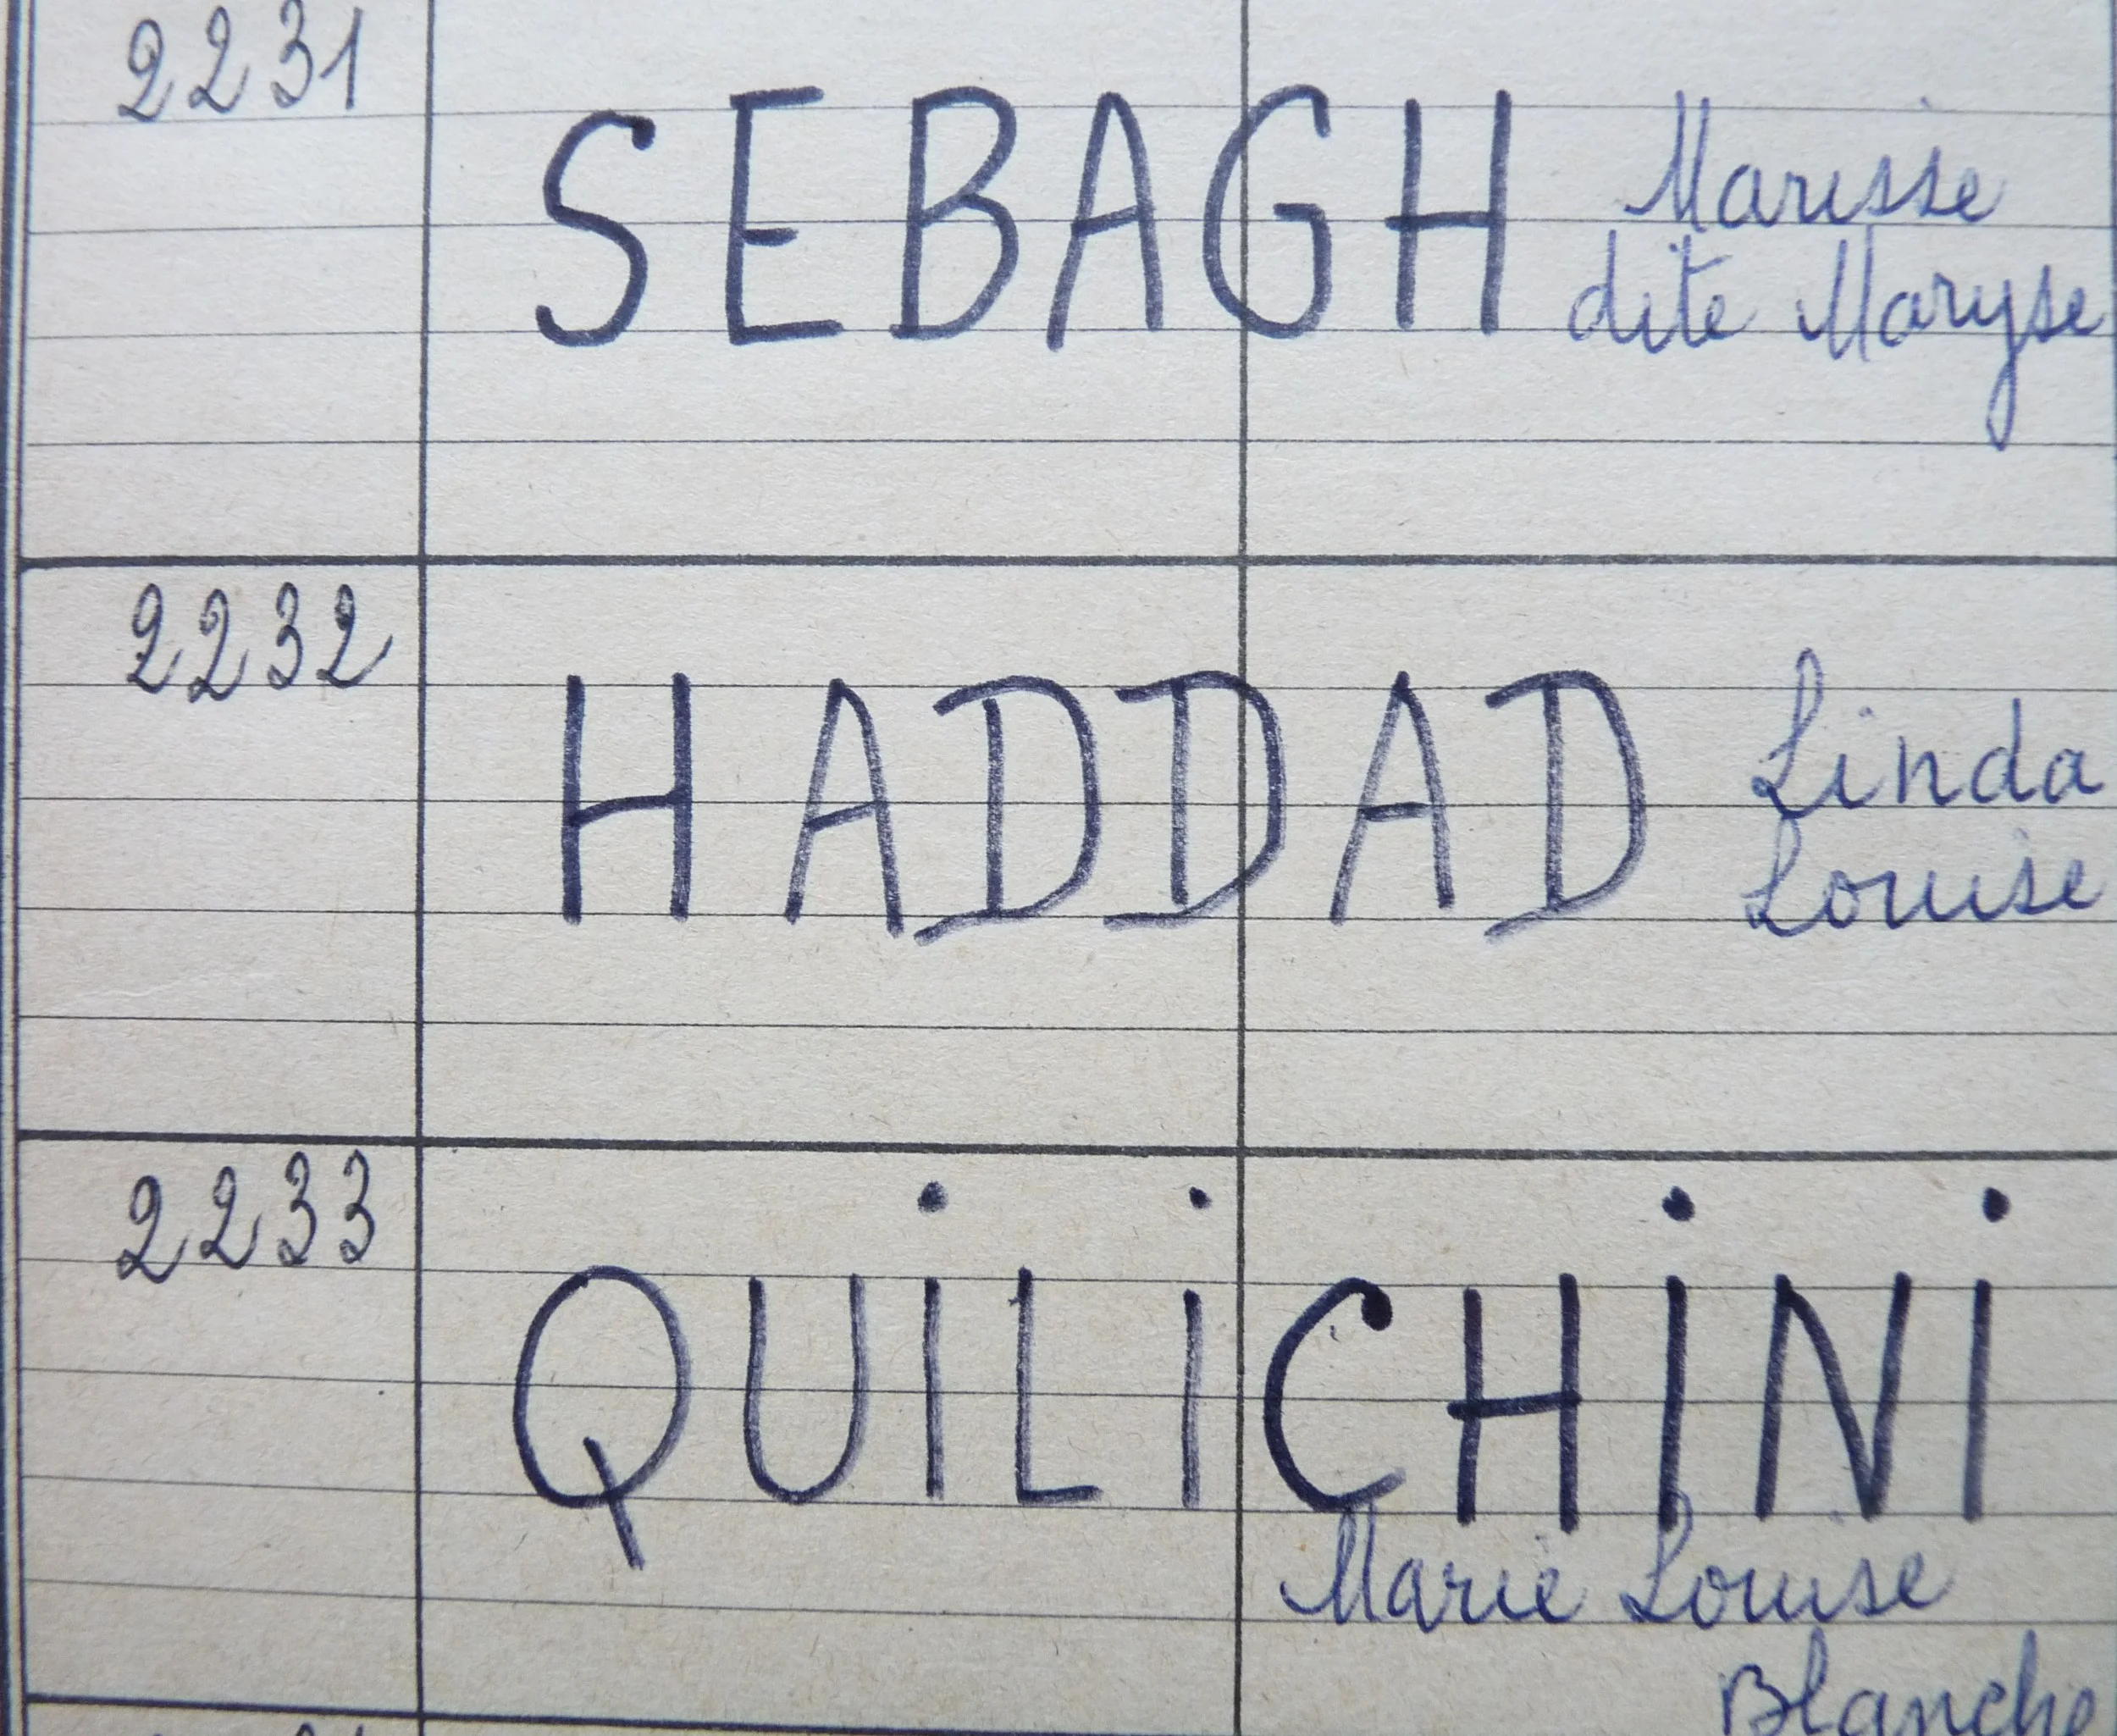 2231
SEBAGH Marisse
dite Maryse
2232
HADDAD Linda
Louise
2233
QUiLiCHiNi
Marie Louise
Blanche